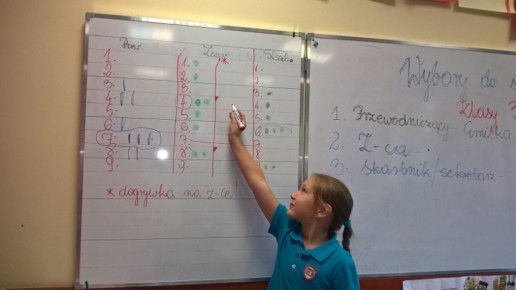 Prze. Zastę. * Skarb.
1. 1. 1.
2. 2. 2.
3. 3. 3.
4. 4. 4.
5. 5. 5.
6. 6. 6.
7. 7. 7.
8. 8. 8.
9. 9. 9.
* dogrywka na z-cę
Wybory do
Klasy 3
1. Przewodniczący Emilka
2. Z-ca
3. skarbnik/sekretarz